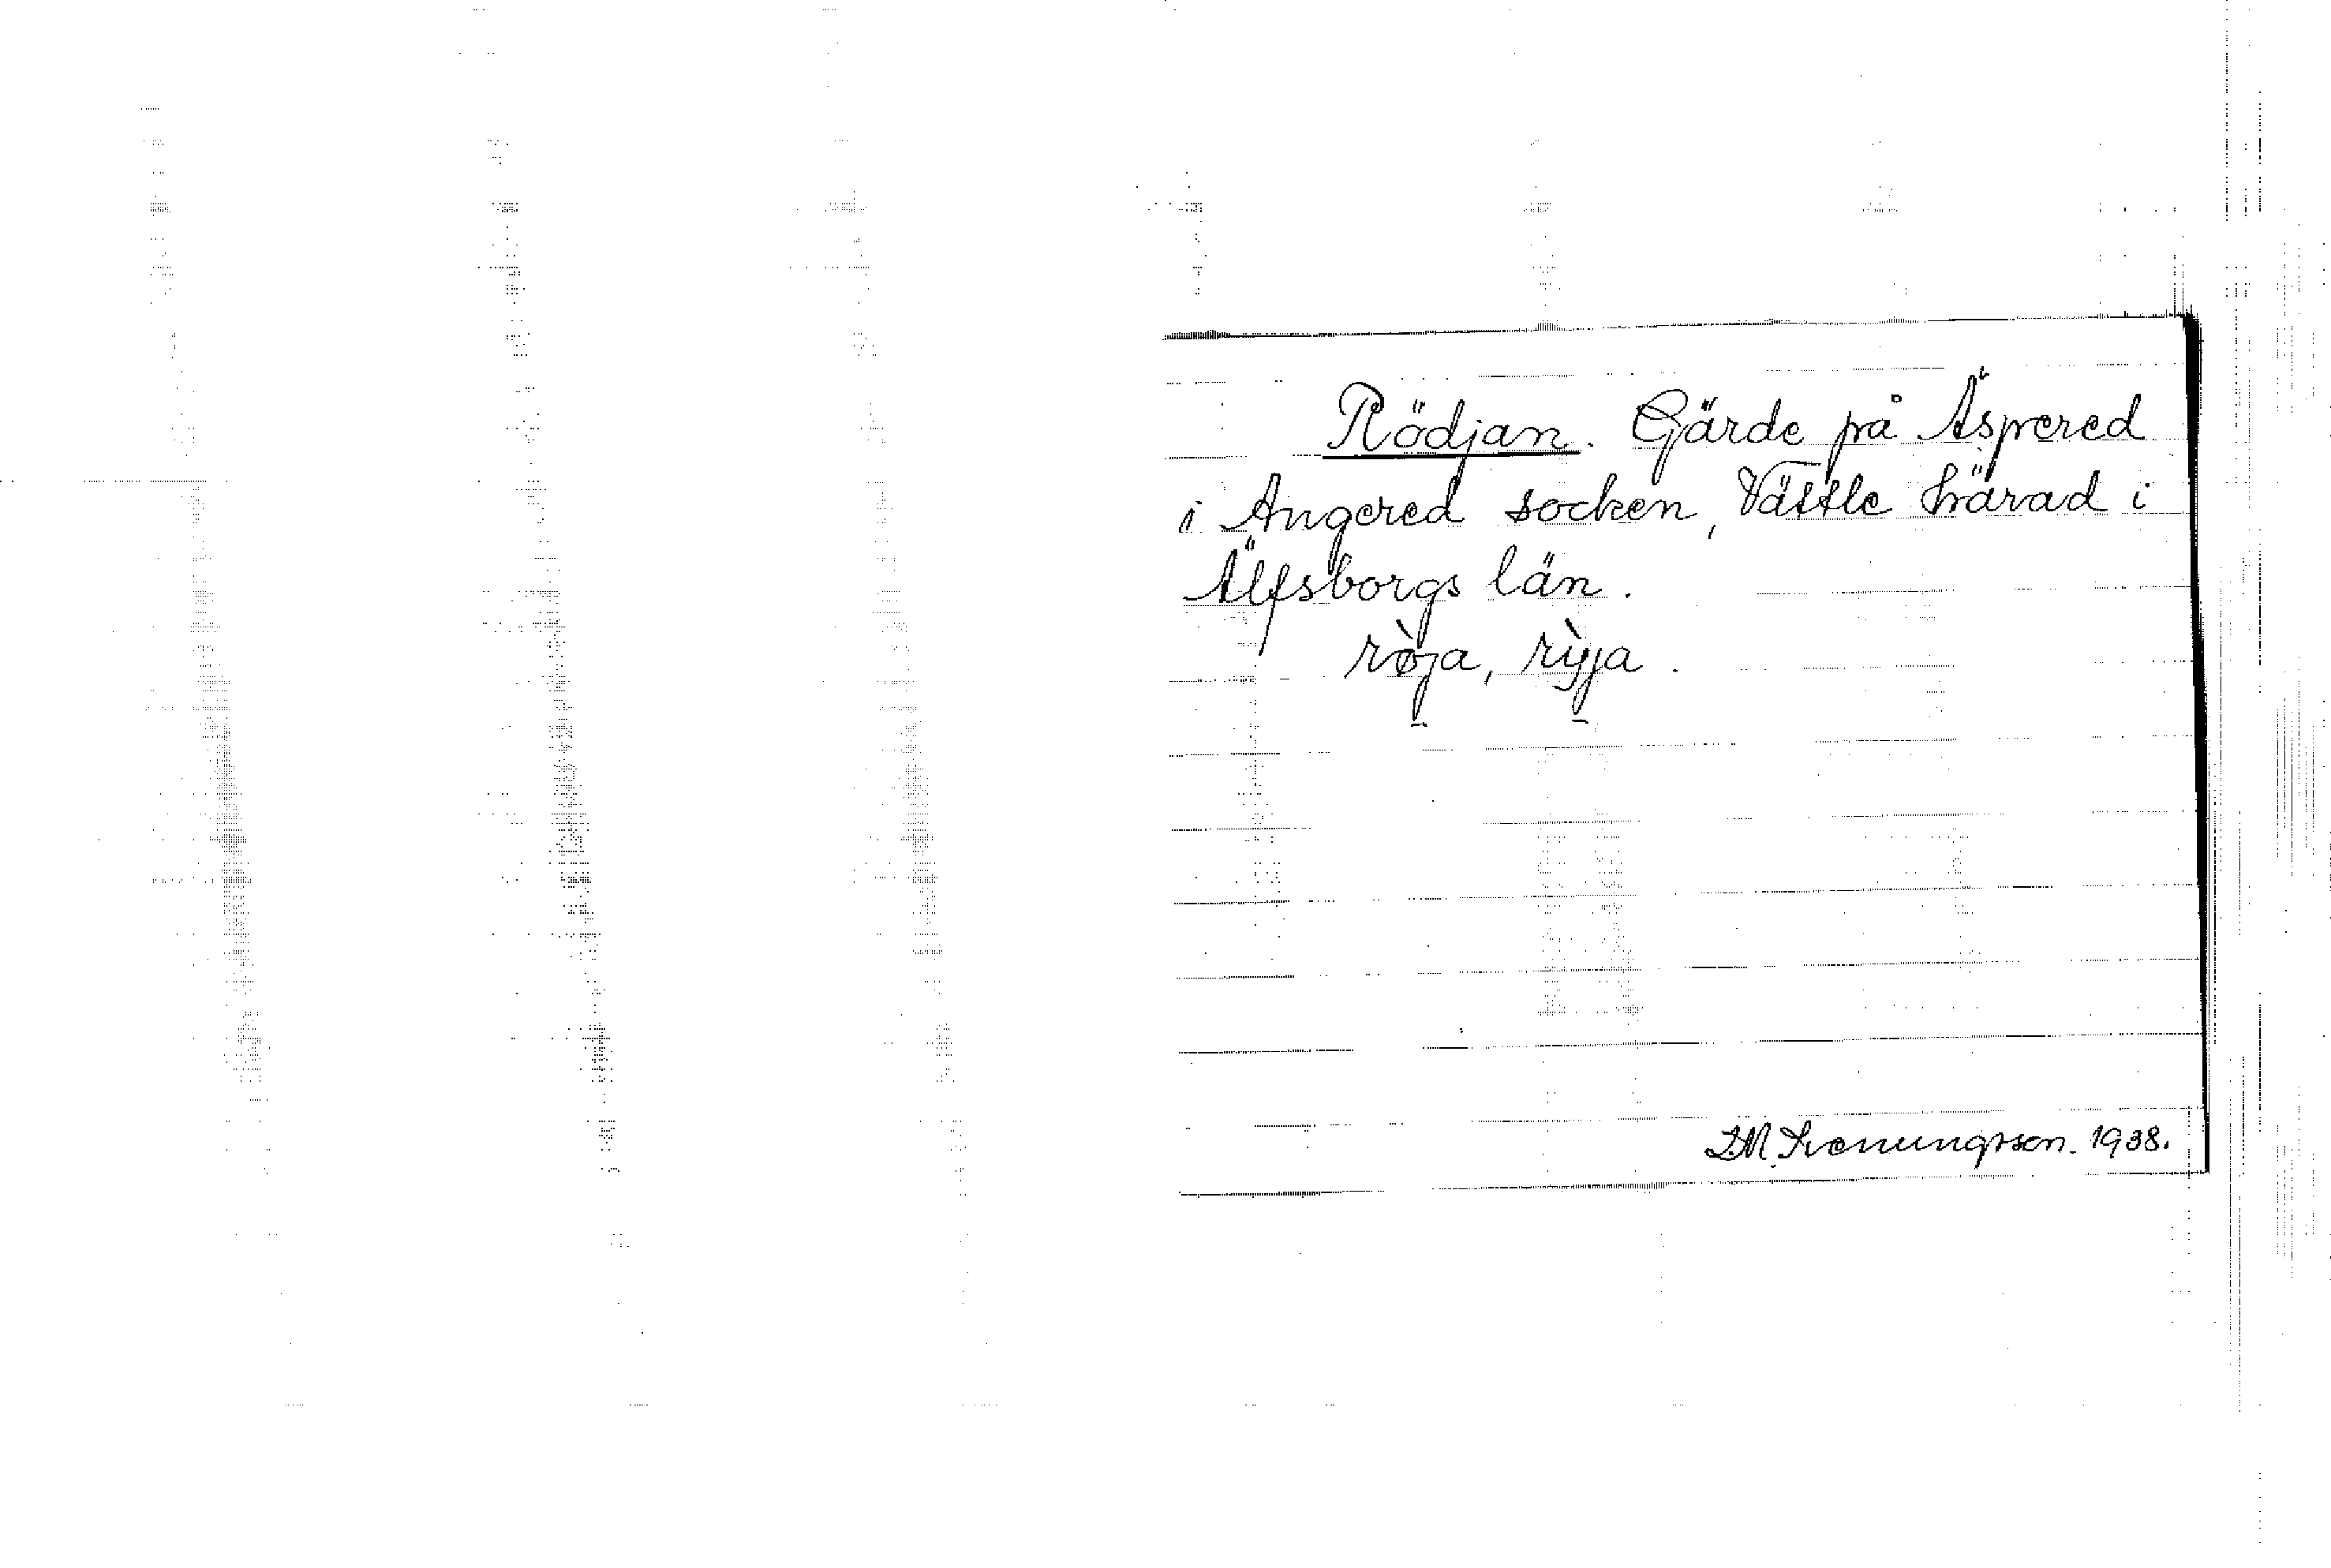 Rödjan. Gärde på Äspered
i Angered socken, Vättle härad i
Älfsborgs län.
rø̀ja, rỳja.
1938.